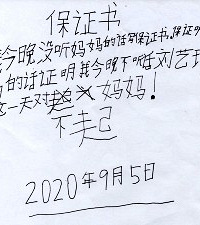 保证书
我今晚没听妈妈的话写保证书,保证明
的话证明我今晚不听任刘艺
这一天对妈妈!
不走起
2020年9月5日